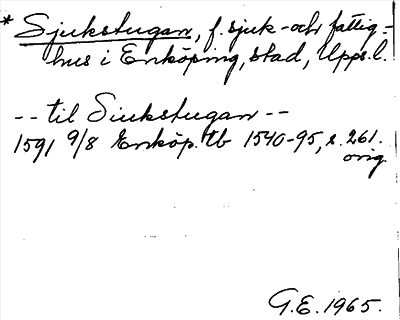 * Sjukstugan, f. sjuk- och fattig-
hus i Enköping, stad, Upps. l.
-- til Siukstugan --
1591 9/8 Enköp. tb 1540-95, s. 261.
orig.
G.E. 1965.